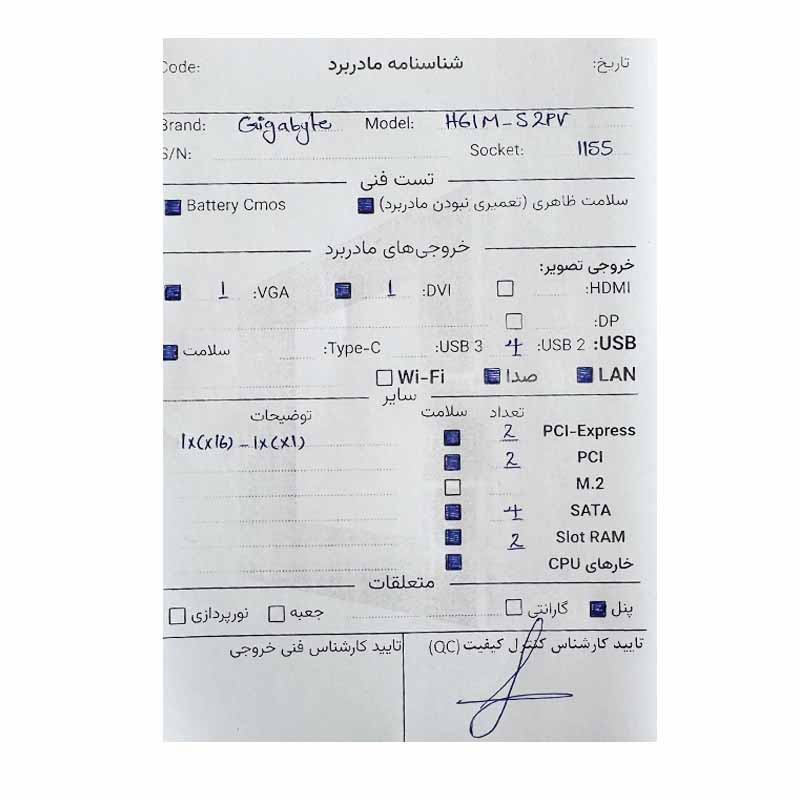 تاریخ: شناسنامه مادربرد Code:
Brand: Gigabyte Model: H61M-S2PV
S/N: Socket: 1155
تست فنی
سلامت ظاهری (تعمیری نبودن مادربرد) Battery Cmos
خروجی‌های مادربرد
خروجی تصویر:
HDMI: DVI: 1 VGA: 1
DP:
USB: USB 2: 4 USB 3: Type-C: سلامت
LAN صدا Wi-Fi
سایر
تعداد سلامت توضیحات
PCI-Express 2 1x(x16) - 1x(x1)
PCI 2
M.2
SATA 4
Slot RAM 2
خارهای CPU
متعلقات
پنل گارانتی جعبه نورپردازی
تایید کارشناس کنترل کیفیت (QC) تایید کارشناس فنی خروجی